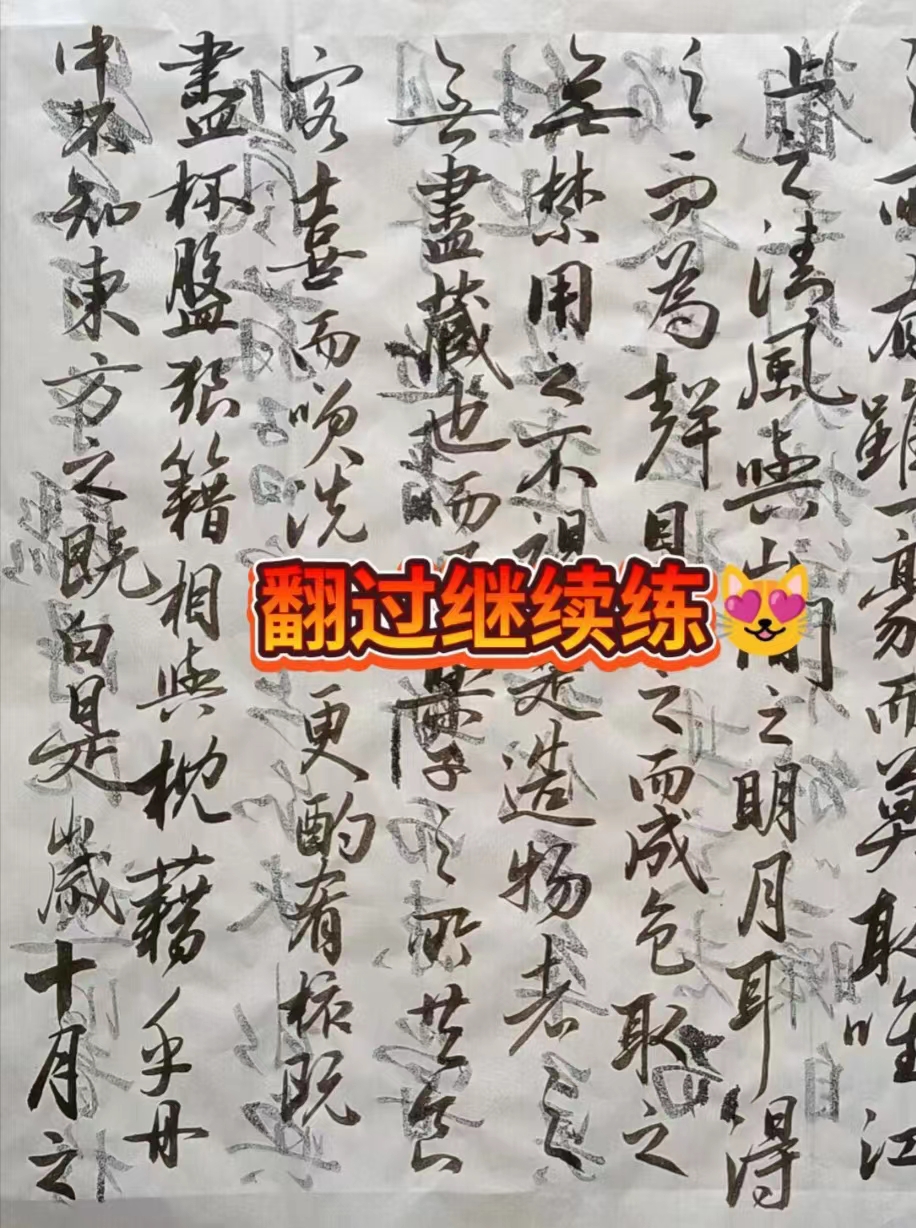 雖一毫而莫取唯江
上之清風與山間之明月耳得
之而為聲目之而成色取之
無禁用之不竭是造物者之
無盡藏也而與子之所共食
客喜而咲洗更酌肴核既
盡杯盤狼籍相與枕藉乎舟
中不知東方之既白是歲十月之
翻过继续练